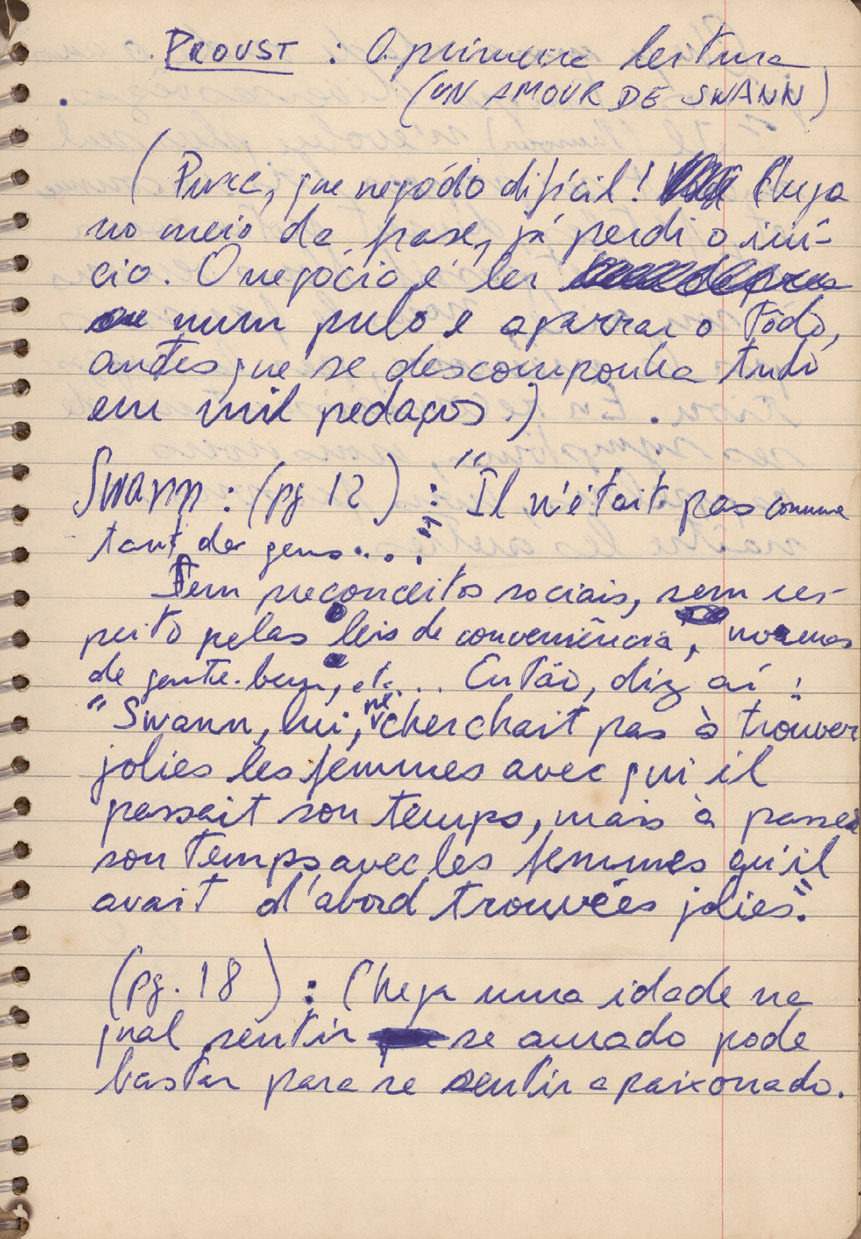 . PROUST : A primeira leitura
(UN AMOUR DE SWANN)
(Puxa, que negócio difícil! Chega
no meio da frase, já perdi o iní-
cio. O negócio é ler
num pulo e agarrar o Todo,
antes que se descomponha tudo
em mil pedaços.)
Swann : (pg 12) : "Il n'était pas comme
tant de gens..."
Sem preconceitos sociais, sem res-
peito pelas leis de conveniência, normas
de gente-bem, etc... Então, diz aí :
"Swann, lui, ne cherchait pas à trouver
jolies les femmes avec qui il
passait son temps, mais à passer
son temps avec les femmes qu'il
avait d'abord trouvées jolies."
(pg. 18) : Chega uma idade na
qual sentir se amado pode
bastar para se sentir apaixonado.